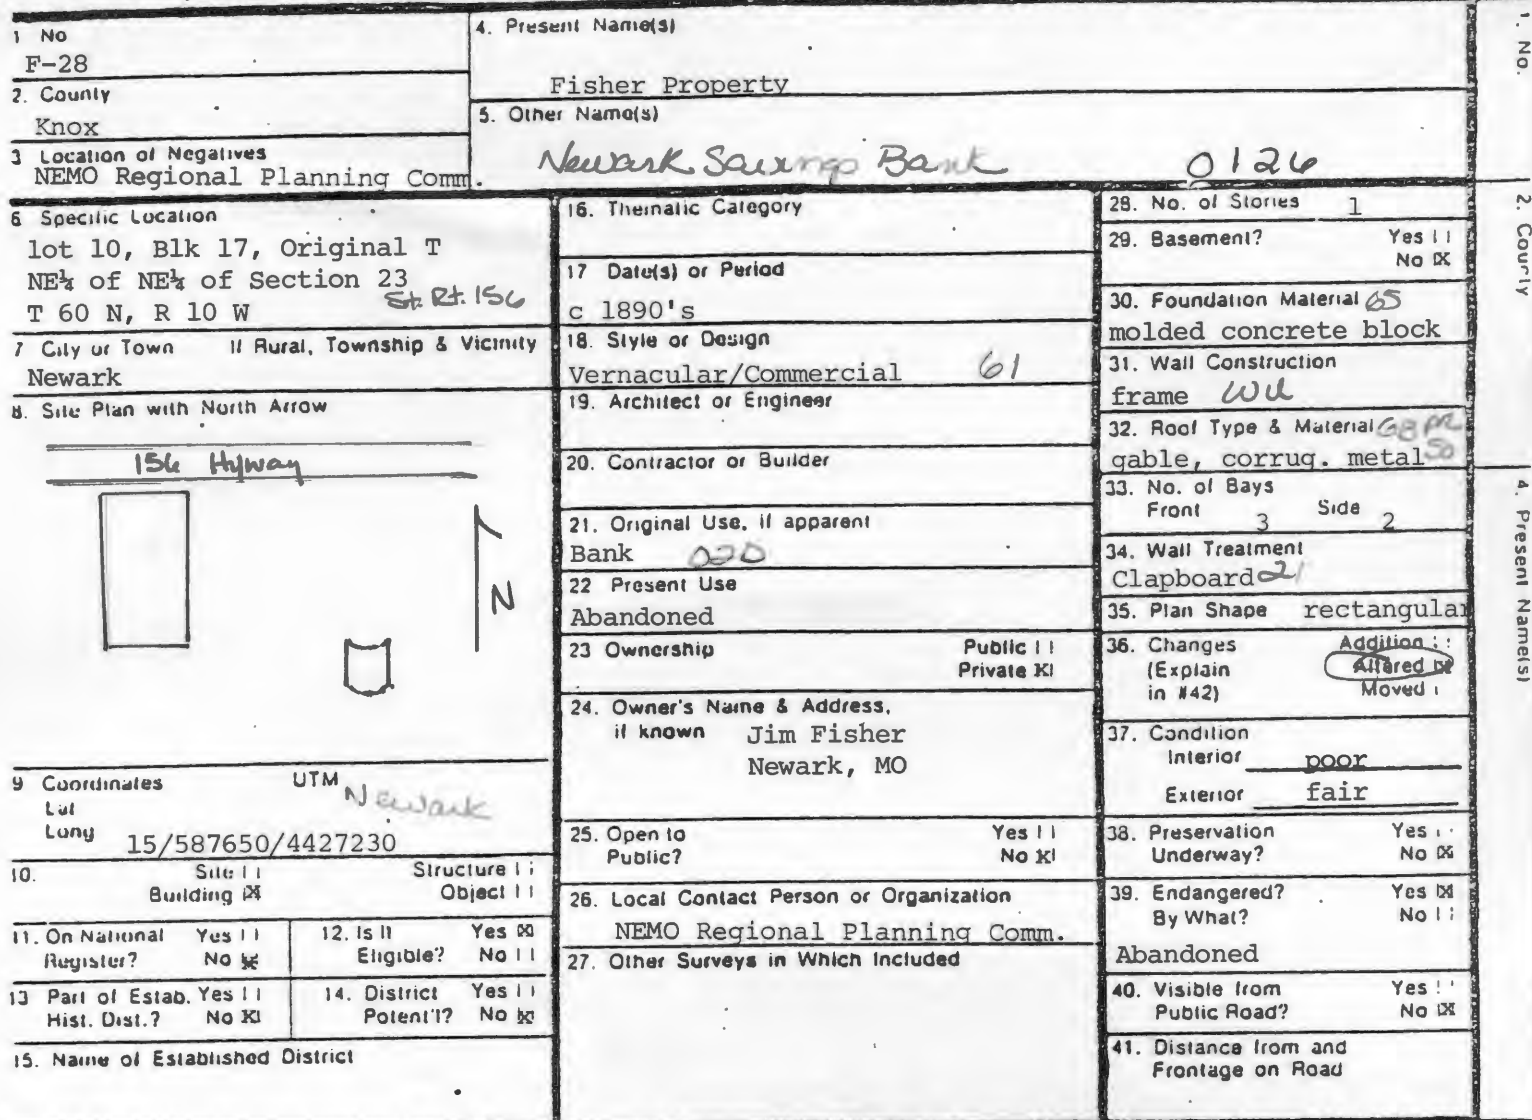 1 No
F-28
2. County
Knox
3 Location of Negatives
NEMO Regional Planning Comm.
4. Present Name(s)
Fisher Property
5. Other Name(s)
Newark Savings Bank 0126
6 Specific Location
lot 10, Blk 17, Original T
NE¼ of NE¼ of Section 23
St. Rt. 156
T 60 N, R 10 W
7 City or Town If Rural, Township & Vicinity
Newark
8. Site Plan with North Arrow
156 Hyway
N
9 Coordinates UTM
Lat
Long
Newark
15/587650/4427230
10. Site | | Structure | |
Building |X| Object | |
11. On National Register? Yes | | No |X|
12. Is It Eligible? Yes |X| No | |
13 Part of Estab. Hist. Dist.? Yes | | No |X|
14. District Potent'l? Yes | | No |X|
15. Name of Established District
16. Thematic Category
17 Date(s) or Period
c 1890's
18. Style or Design
Vernacular/Commercial 61
19. Architect or Engineer
20. Contractor or Builder
21. Original Use, if apparent
Bank 02D
22 Present Use
Abandoned
23 Ownership Public | |
Private |X|
24. Owner's Name & Address,
if known Jim Fisher
Newark, MO
25. Open to Yes | |
Public? No |X|
26. Local Contact Person or Organization
NEMO Regional Planning Comm.
27. Other Surveys in Which Included
28. No. of Stories 1
29. Basement? Yes | |
No |X|
30. Foundation Material 65
molded concrete block
31. Wall Construction
frame
32. Roof Type & Material GB
gable, corrug. metal 50
33. No. of Bays
Front 3 Side 2
34. Wall Treatment
Clapboard 21
35. Plan Shape rectangular
36. Changes Addition | |
(Explain Altered |X|
in #42) Moved |
37. Condition
Interior poor
Exterior fair
38. Preservation Yes | |
Underway? No |X|
39. Endangered? Yes |X|
By What? No | |
Abandoned
40. Visible from Yes | |
Public Road? No |X|
41. Distance from and
Frontage on Road
1. No.
2. County
4. Present Name(s)